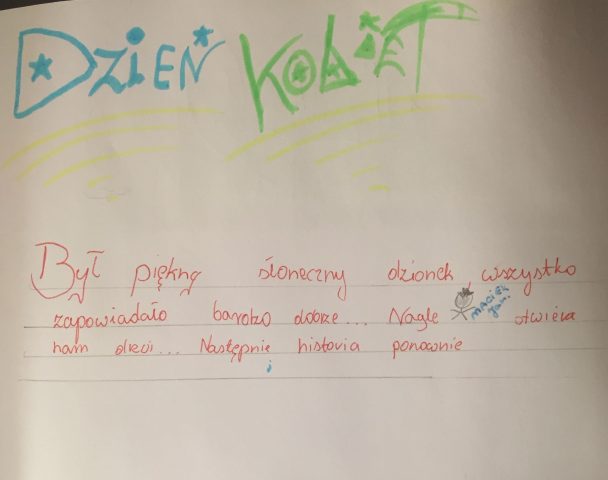 DZIEŃ KOBIET
Był piękny słoneczny dzionek, wszystko
zapowiadało bardzo dobrze... Nagle Maciek Jan. otwiera
nam drzwi... Następnie historia ponownie